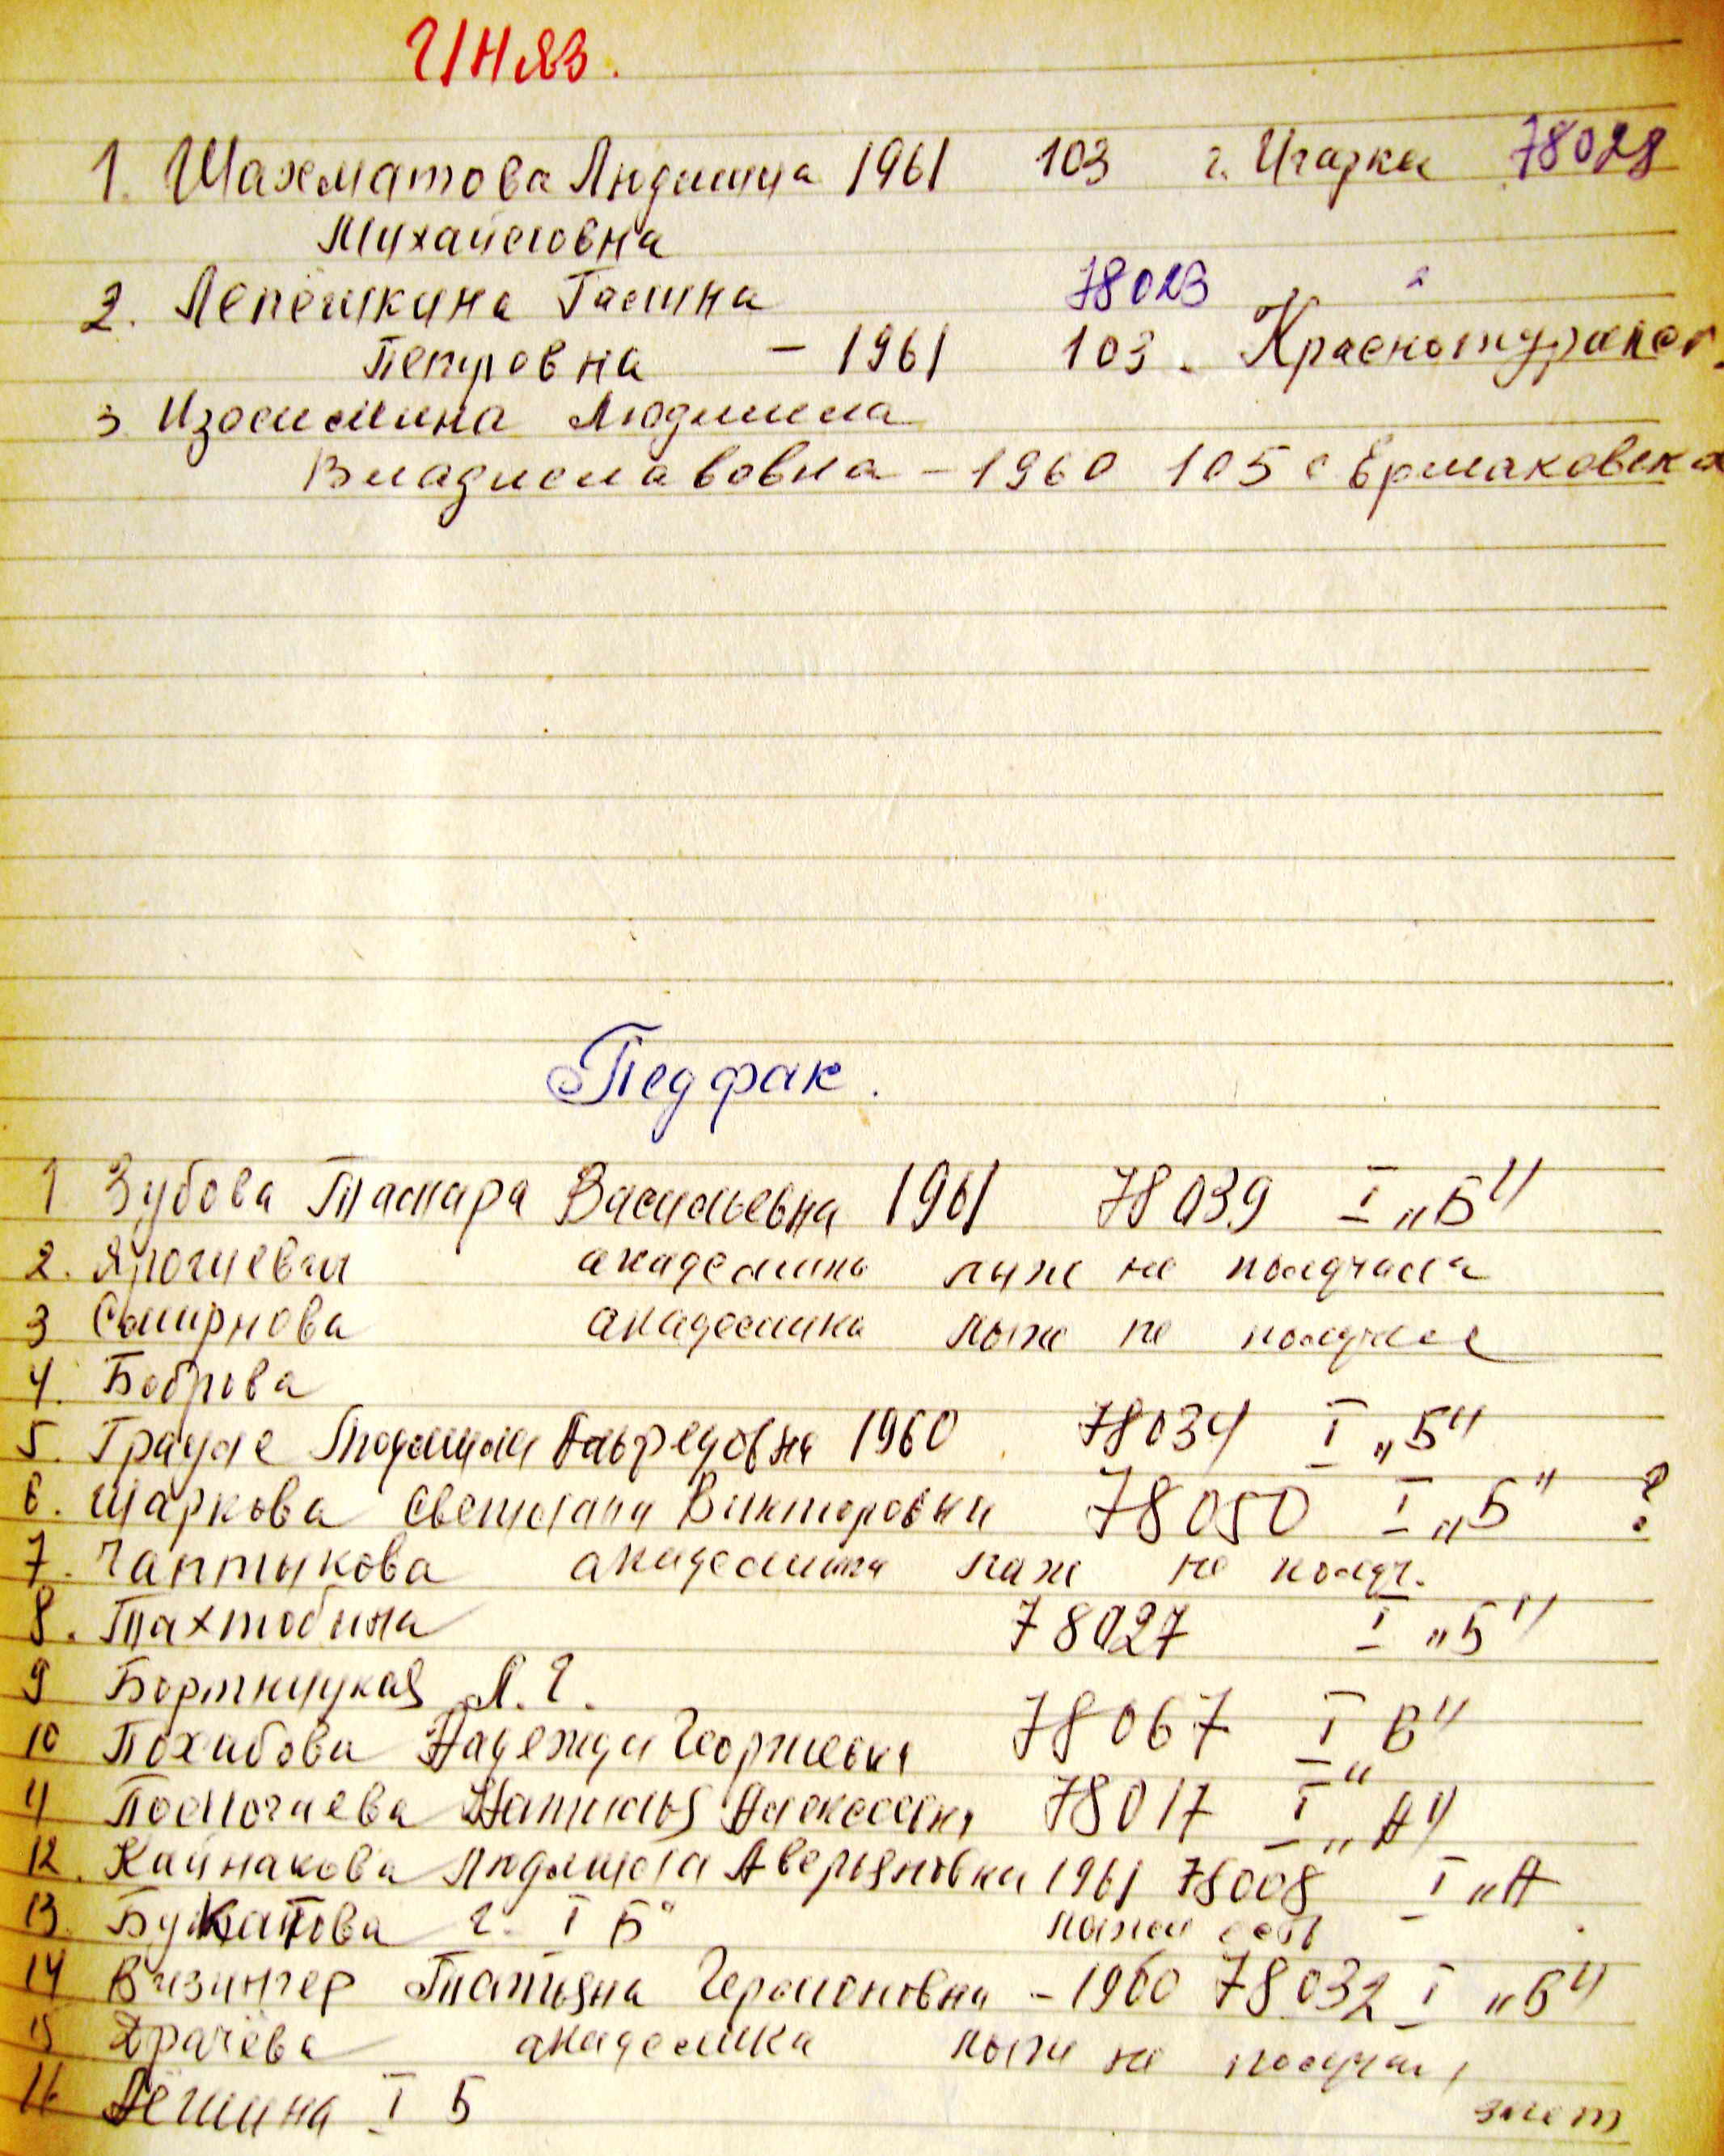 ИНЯЗ.
1. Шахматова Людмила 1961 103 г. Игарка 78028
Михайловна
2. Лепёшкина Галина 78023
Петровна - 1961 103. Краснотуранск.
3 Изосимина Людмила
Владиславовна - 1960 105 с Ермаковска
Педфак.
1 Зубова Тамара Васильевна 1961 78039 I „Б"
2. академика лыж не получала
3 Смирнова академика лыж не получала
4. Боброва
5. Грауле Людмила Альфредовна 1960 78034 I „Б"
6. Шаркова Светлана Викторовна 78050 I „Б" ?
7. Чаптыкова академика лыж не получ.
8. Тахтобина 78027 I „Б"
9 Бортницкая Л. Г.
10 Похабова Надежда Георгиевна 78067 I „В"
11 Помогаева Наталья Алексеевна 78017 I „А"
12. Кайнакова Людмила Аверьяновна 1961 78008 I „А
13. г. I Б" лыжи есть
14 Визингер Татьяна Германовна - 1960 78032 I „Б"
15 Драчёва академика лыж не получала
16 Лёгшина I Б